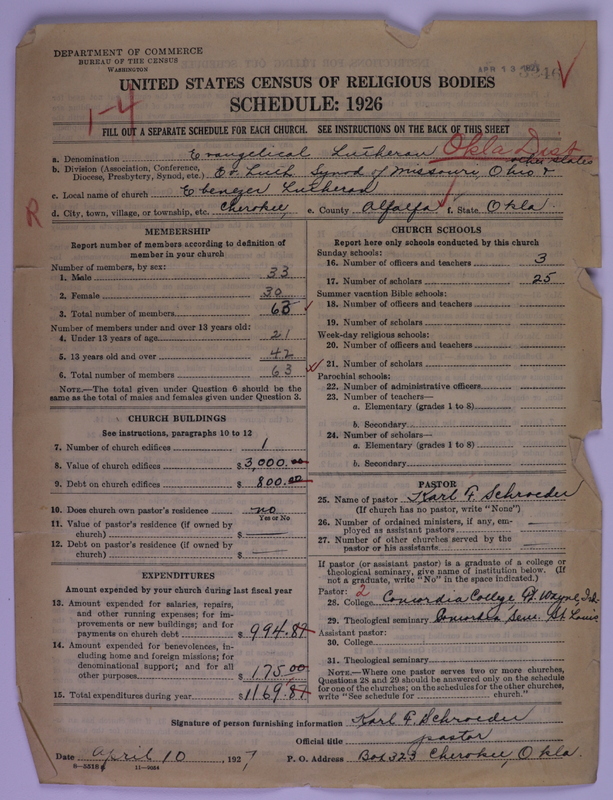 DEPARTMENT OF COMMERCE
BUREAU OF THE CENSUS
WASHINGTON
APR 13 1927
UNITED STATES CENSUS OF RELIGIOUS BODIES
SCHEDULE: 1926
1-4
FILL OUT A SEPARATE SCHEDULE FOR EACH CHURCH. SEE INSTRUCTIONS ON THE BACK OF THIS SHEET
Okla Dist
a. Denomination Evangelical Lutheran
b. Division (Association, Conference, Diocese, Presbytery, Synod, etc.) Ev. Luth Synod of Missouri, Ohio & other states
c. Local name of church Ebenezer Lutheran
R
d. City, town, village, or township, etc. Cherokee e. County Alfalfa f. State Okla.
MEMBERSHIP
Report number of members according to definition of
member in your church
Number of members, by sex:
1. Male 33
2. Female 30
3. Total number of members 63
Number of members under and over 13 years old:
4. Under 13 years of age 21
5. 13 years old and over 42
6. Total number of members 63
NOTE.—The total given under Question 6 should be the
same as the total of males and females given under Question 3.
CHURCH BUILDINGS
See instructions, paragraphs 10 to 12
7. Number of church edifices 1
8. Value of church edifices $3,000.00
9. Debt on church edifices $800.00
10. Does church own pastor's residence no
Yes or No
11. Value of pastor's residence (if owned by
church) $
12. Debt on pastor's residence (if owned by
church) $
EXPENDITURES
Amount expended by your church during last fiscal year
13. Amount expended for salaries, repairs,
and other running expenses; for im-
provements or new buildings; and for
payments on church debt $994.87
14. Amount expended for benevolences, in-
cluding home and foreign missions; for
denominational support; and for all
other purposes $175.00
15. Total expenditures during year $1169.87
CHURCH SCHOOLS
Report here only schools conducted by this church
Sunday schools:
16. Number of officers and teachers 3
17. Number of scholars 25
Summer vacation Bible schools:
18. Number of officers and teachers
19. Number of scholars
Week-day religious schools:
20. Number of officers and teachers
21. Number of scholars
Parochial schools:
22. Number of administrative officers
23. Number of teachers—
a. Elementary (grades 1 to 8)
b. Secondary
24. Number of scholars—
a. Elementary (grades 1 to 8)
b. Secondary
PASTOR
25. Name of pastor Karl F. Schroeder
(If church has no pastor, write "None")
26. Number of ordained ministers, if any, em-
ployed as assistant pastors
27. Number of other churches served by the
pastor or his assistants
If pastor (or assistant pastor) is a graduate of a college or
theological seminary, give name of institution below. (If
not a graduate, write "No" in the space indicated.)
Pastor: 2
28. College Concordia College Ft. Wayne, Ind.
29. Theological seminary Concordia Sem. St Louis
Assistant pastor:
30. College
31. Theological seminary
NOTE.—Where one pastor serves two or more churches,
Questions 28 and 29 should be answered only on the schedule
for one of the churches; on the schedules for the other churches,
write "See schedule for church."
Signature of person furnishing information Karl F. Schroeder
Official title pastor
Date April 10, 1927 P. O. Address Box 323 Cherokee, Okla.
8-5518 11-9064